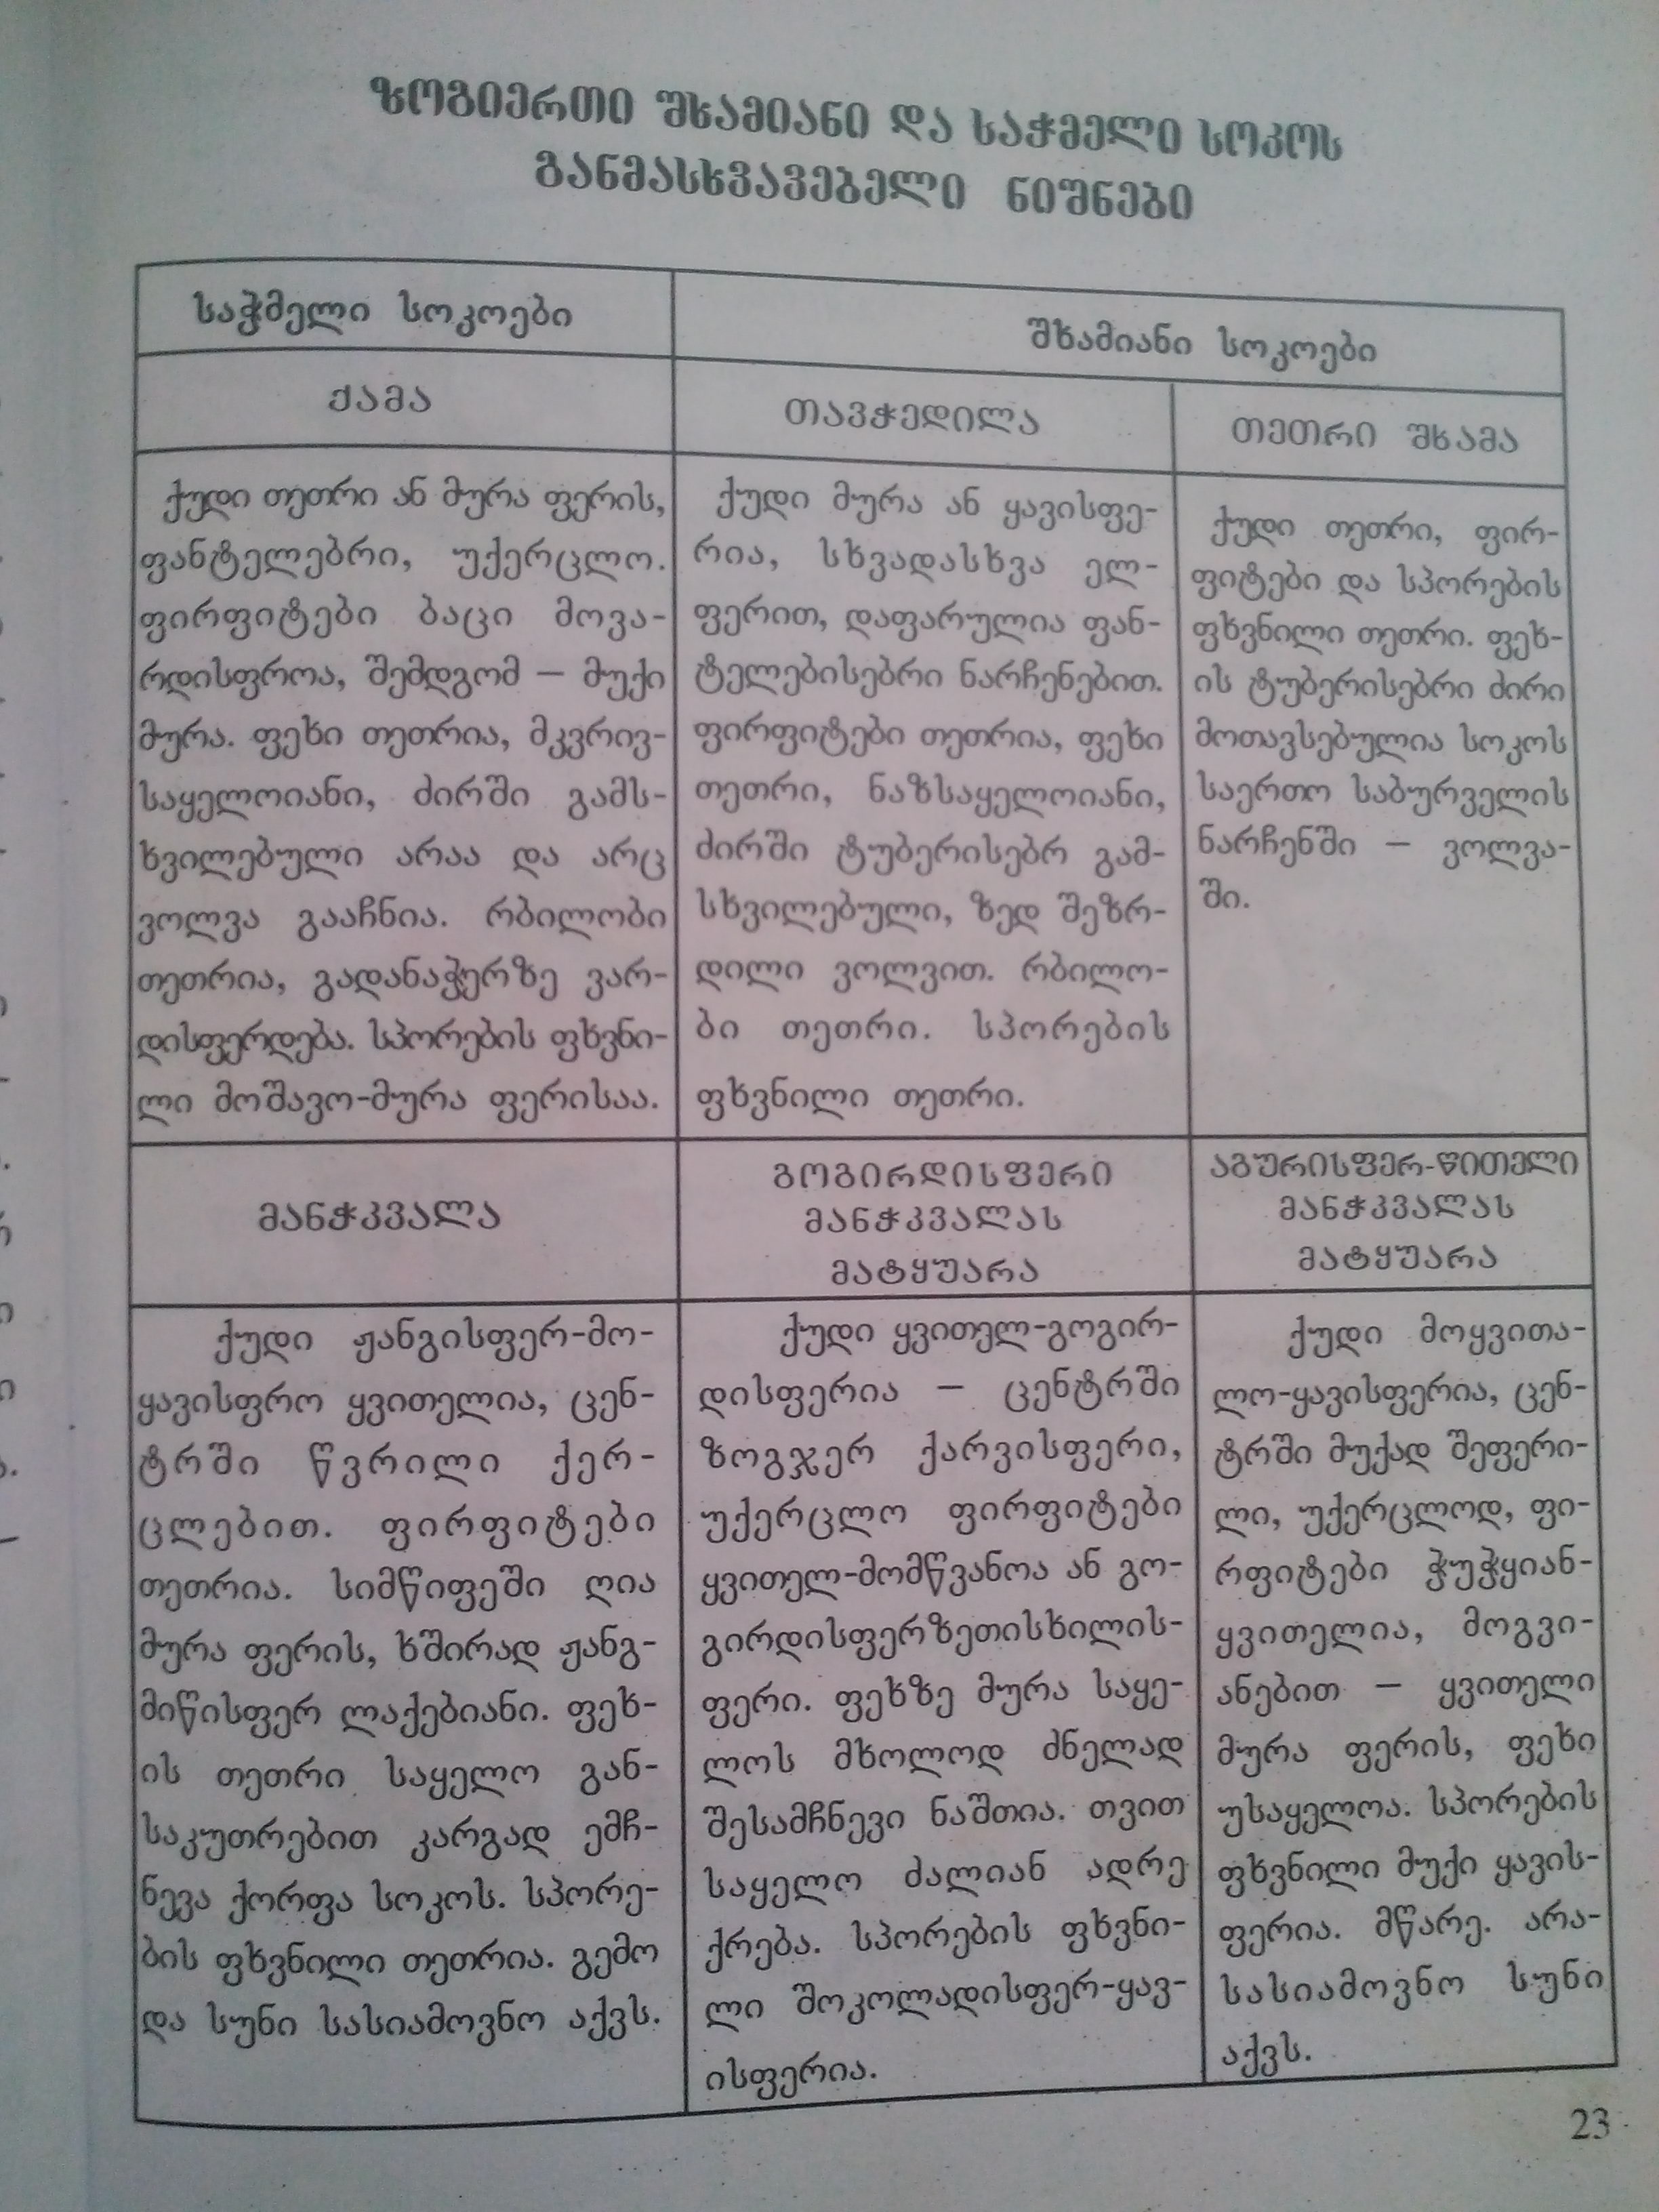 ზოგიერთი შხამიანი და საჭმელი სოკოს
განმასხვავებელი ნიშნები
საჭმელი სოკოები
შხამიანი სოკოები
ქამა
თავჭედილა
თეთრი შხამა
ქუდი თეთრი ან მურა ფერის,
ფანტელებრი, უქერცლო.
ფირფიტები ბაცი მოვა-
რდისფროა, შემდგომ — მუქი
მურა. ფეხი თეთრია, მკვრივ-
საყელოიანი, ძირში გამს-
ხვილებული არაა და არც
ვოლვა გააჩნია. რბილობი
თეთრია, გადანაჭერზე ვარ-
დისფერდება. სპორების ფხვნი-
ლი მოშავო-მურა ფერისაა.
ქუდი მურა ან ყავისფე-
რია, სხვადასხვა ელ-
ფერით, დაფარულია ფან-
ტელებისებრი ნარჩენებით.
ფირფიტები თეთრია, ფეხი
თეთრი, ნაზსაყელოიანი,
ძირში ტუბერისებრ გამ-
სხვილებული, ზედ შეზრ-
დილი ვოლვით. რბილო-
ბი თეთრი. სპორების
ფხვნილი თეთრი.
ქუდი თეთრი, ფირ-
ფიტები და სპორების
ფხვნილი თეთრი. ფეხ-
ის ტუბერისებრი ძირი
მოთავსებულია სოკოს
საერთო საბურველის
ნარჩენში — ვოლვა-
ში.
მანჭკვალა
გოგირდისფერი
მანჭკვალას
მატყუარა
აგურისფერ-წითელი
მანჭკვალას
მატყუარა
ქუდი ჟანგისფერ-მო-
ყავისფრო ყვითელია, ცენ-
ტრში წვრილი ქერ-
ცლებით. ფირფიტები
თეთრია. სიმწიფეში ღია
მურა ფერის, ხშირად ჟანგ-
მიწისფერ ლაქებიანი. ფეხ-
ის თეთრი საყელო გან-
საკუთრებით კარგად ემჩ-
ნევა ქორფა სოკოს. სპორე-
ბის ფხვნილი თეთრია. გემო
და სუნი სასიამოვნო აქვს.
ქუდი ყვითელ-გოგირ-
დისფერია — ცენტრში
ზოგჯერ ქარვისფერი,
უქერცლო ფირფიტები
ყვითელ-მომწვანოა ან გო-
გირდისფერზეთისხილის-
ფერი. ფეხზე მურა საყე-
ლოს მხოლოდ ძნელად
შესამჩნევი ნაშთია. თვით
საყელო ძალიან ადრე
ქრება. სპორების ფხვნი-
ლი შოკოლადისფერ-ყავ-
ისფერია.
ქუდი მოყვითა-
ლო-ყავისფერია, ცენ-
ტრში მუქად შეფერი-
ლი, უქერცლოდ, ფი-
რფიტები ჭუჭყიან-
ყვითელია, მოგვი-
ანებით — ყვითელი
მურა ფერის, ფეხი
უსაყელოა. სპორების
ფხვნილი მუქი ყავის-
ფერია. მწარე. არა-
სასიამოვნო სუნი
აქვს.
23